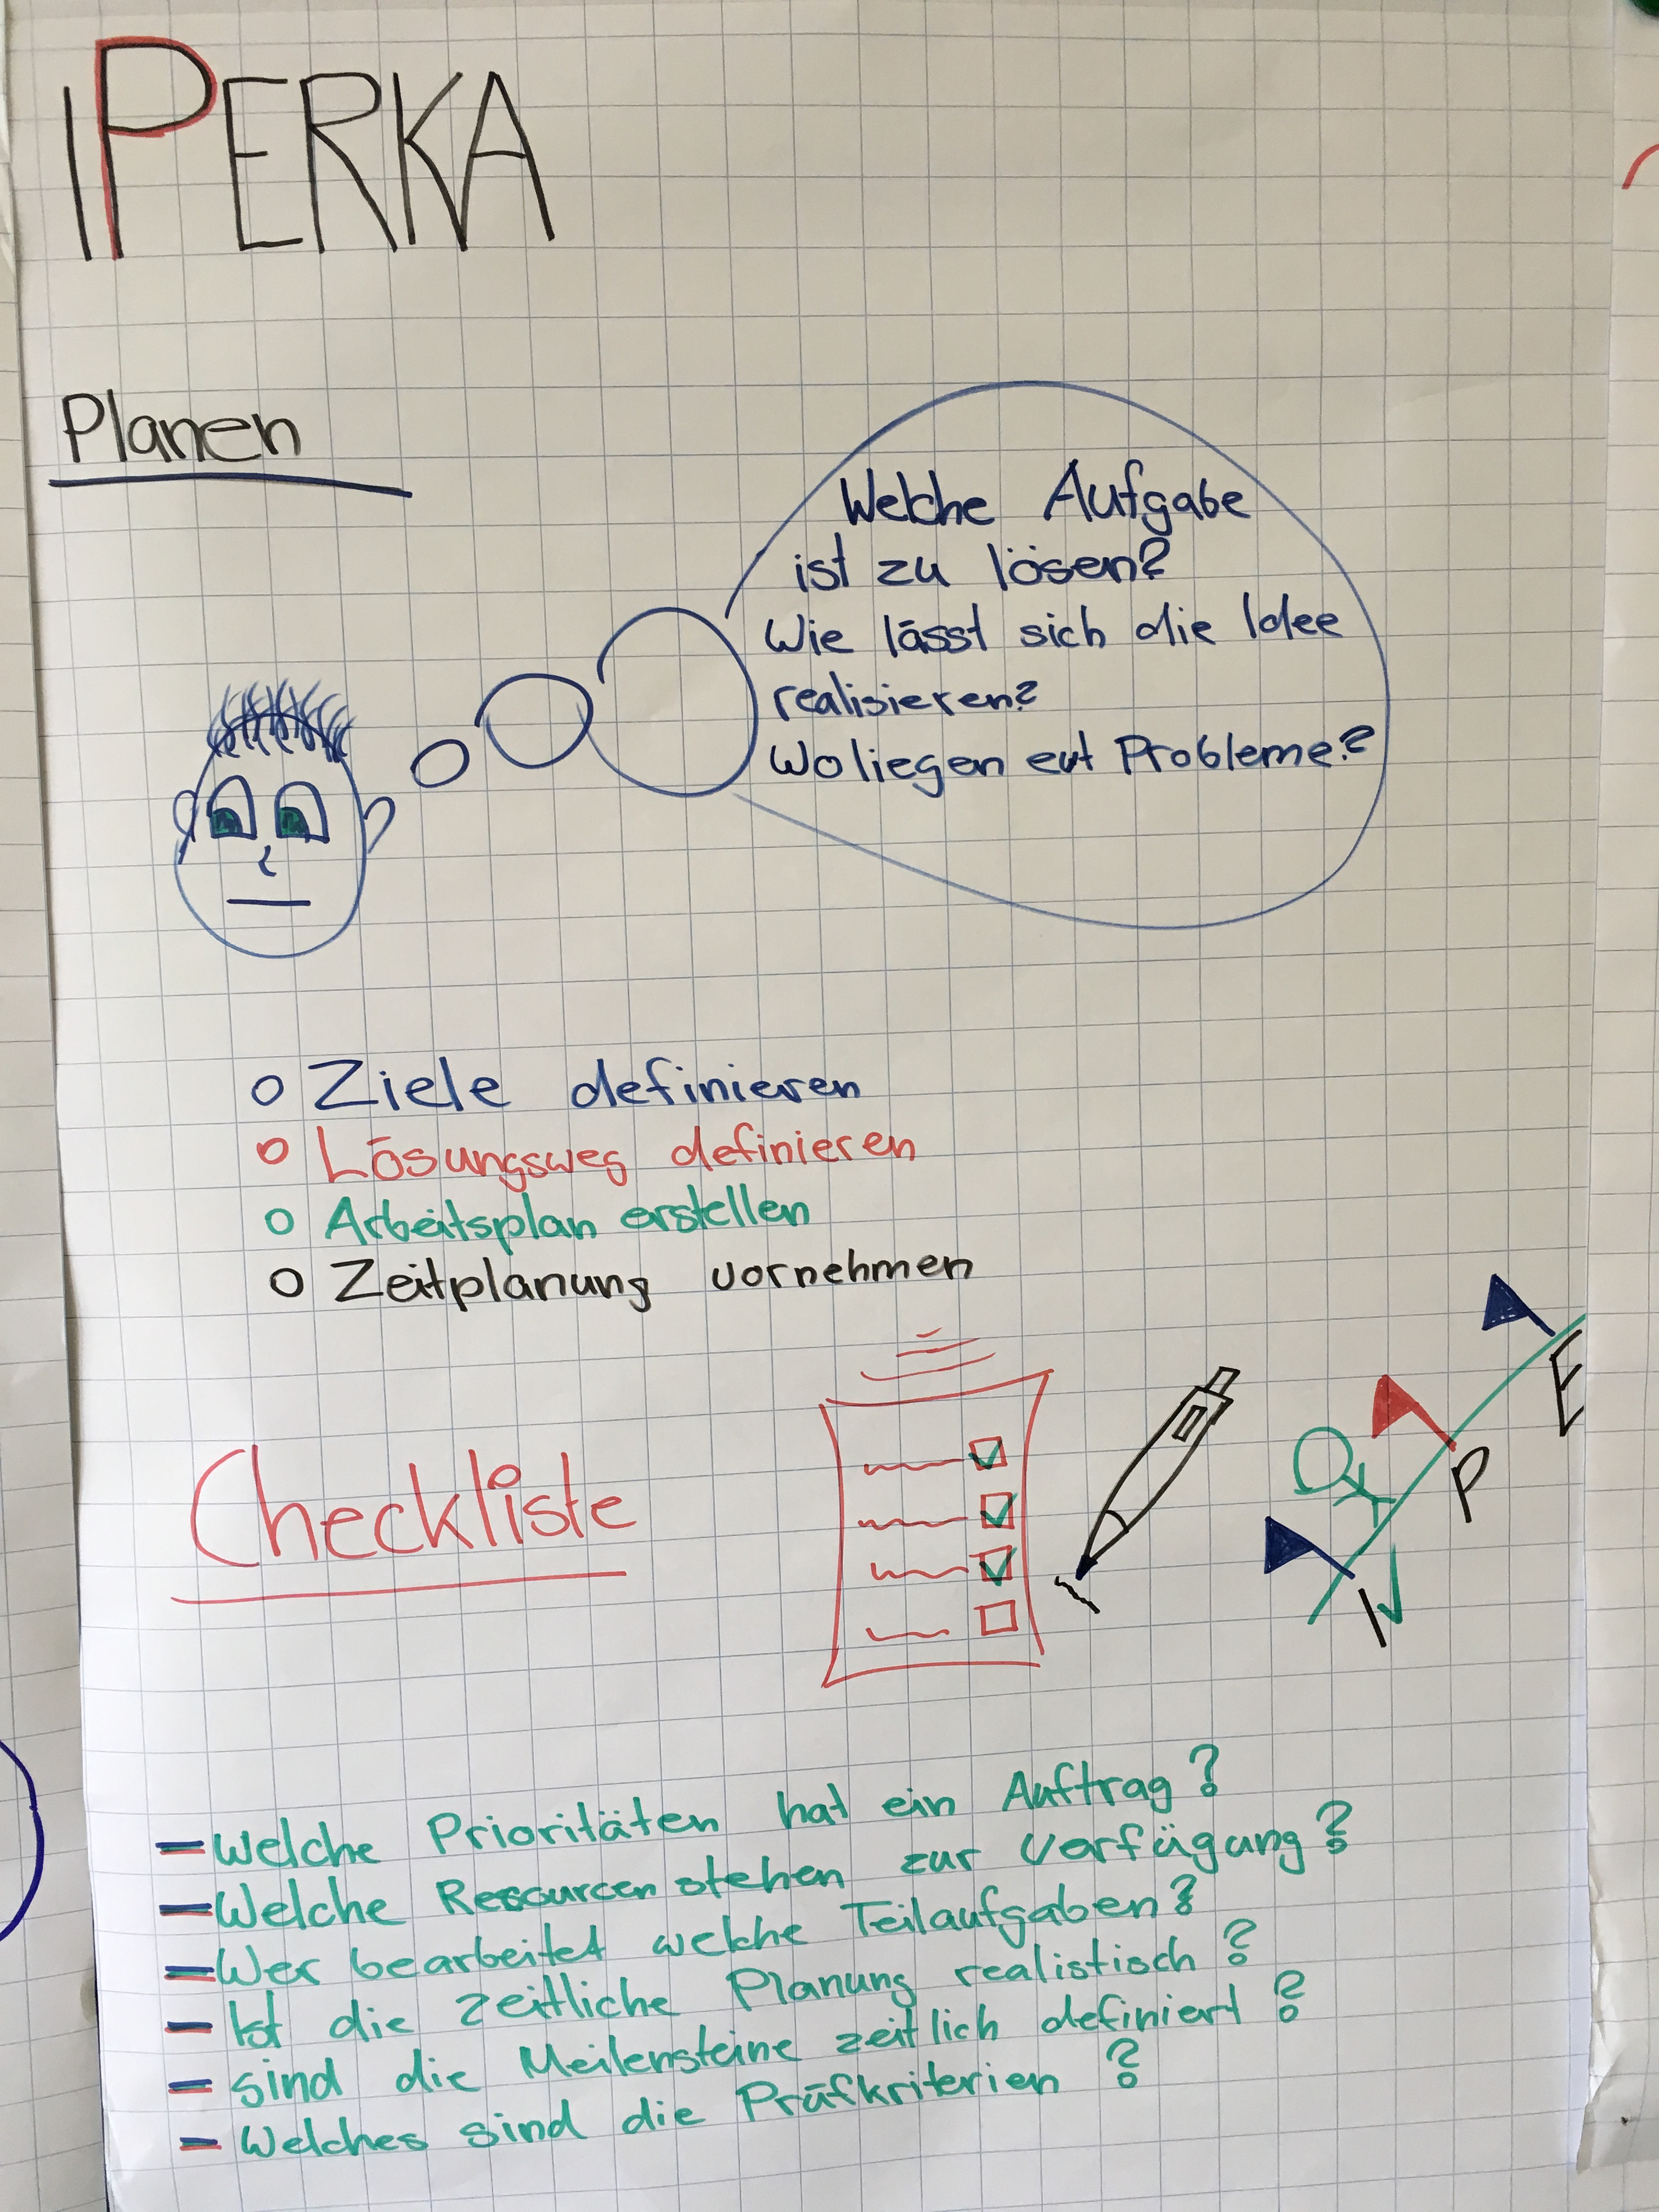 IPERKA
Planen
Welche Aufgabe
ist zu lösen?
Wie lässt sich die Idee
realisieren?
Wo liegen evt Probleme?
Ziele definieren
Lösungsweg definieren
Arbeitsplan erstellen
Zeitplanung vornehmen
Checkliste
E
P
I
- Welche Prioritäten hat ein Auftrag?
- Welche Resourcen stehen zur Verfügung?
- Wer bearbeitet welche Teilaufgaben?
- Ist die zeitliche Planung realistisch?
- sind die Meilensteine zeitlich definiert?
- Welches sind die Prüfkriterien?